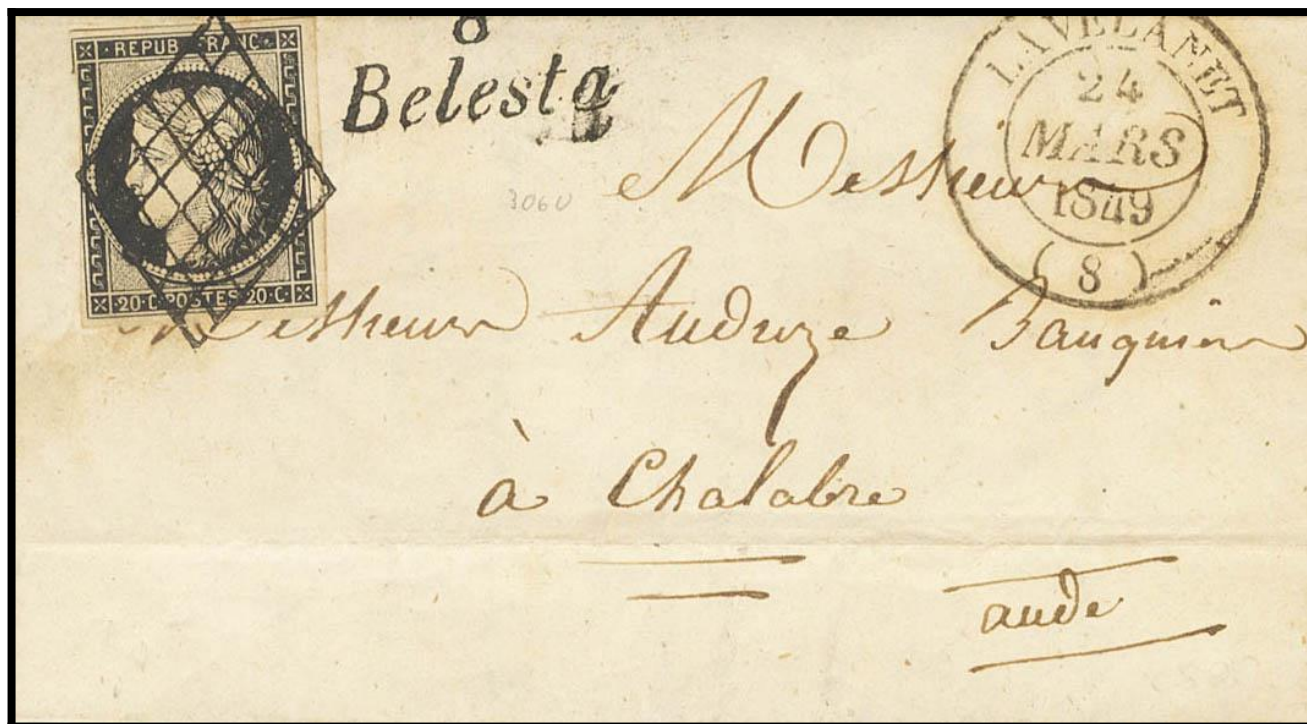 REPUB FRANC
20·C·POSTES·20·C·
8
Belesta
LAVELANET
24
MARS
1849
(8)
3060
Messieurs
Messieurs Audroze Banquier
à Chalabre
aude